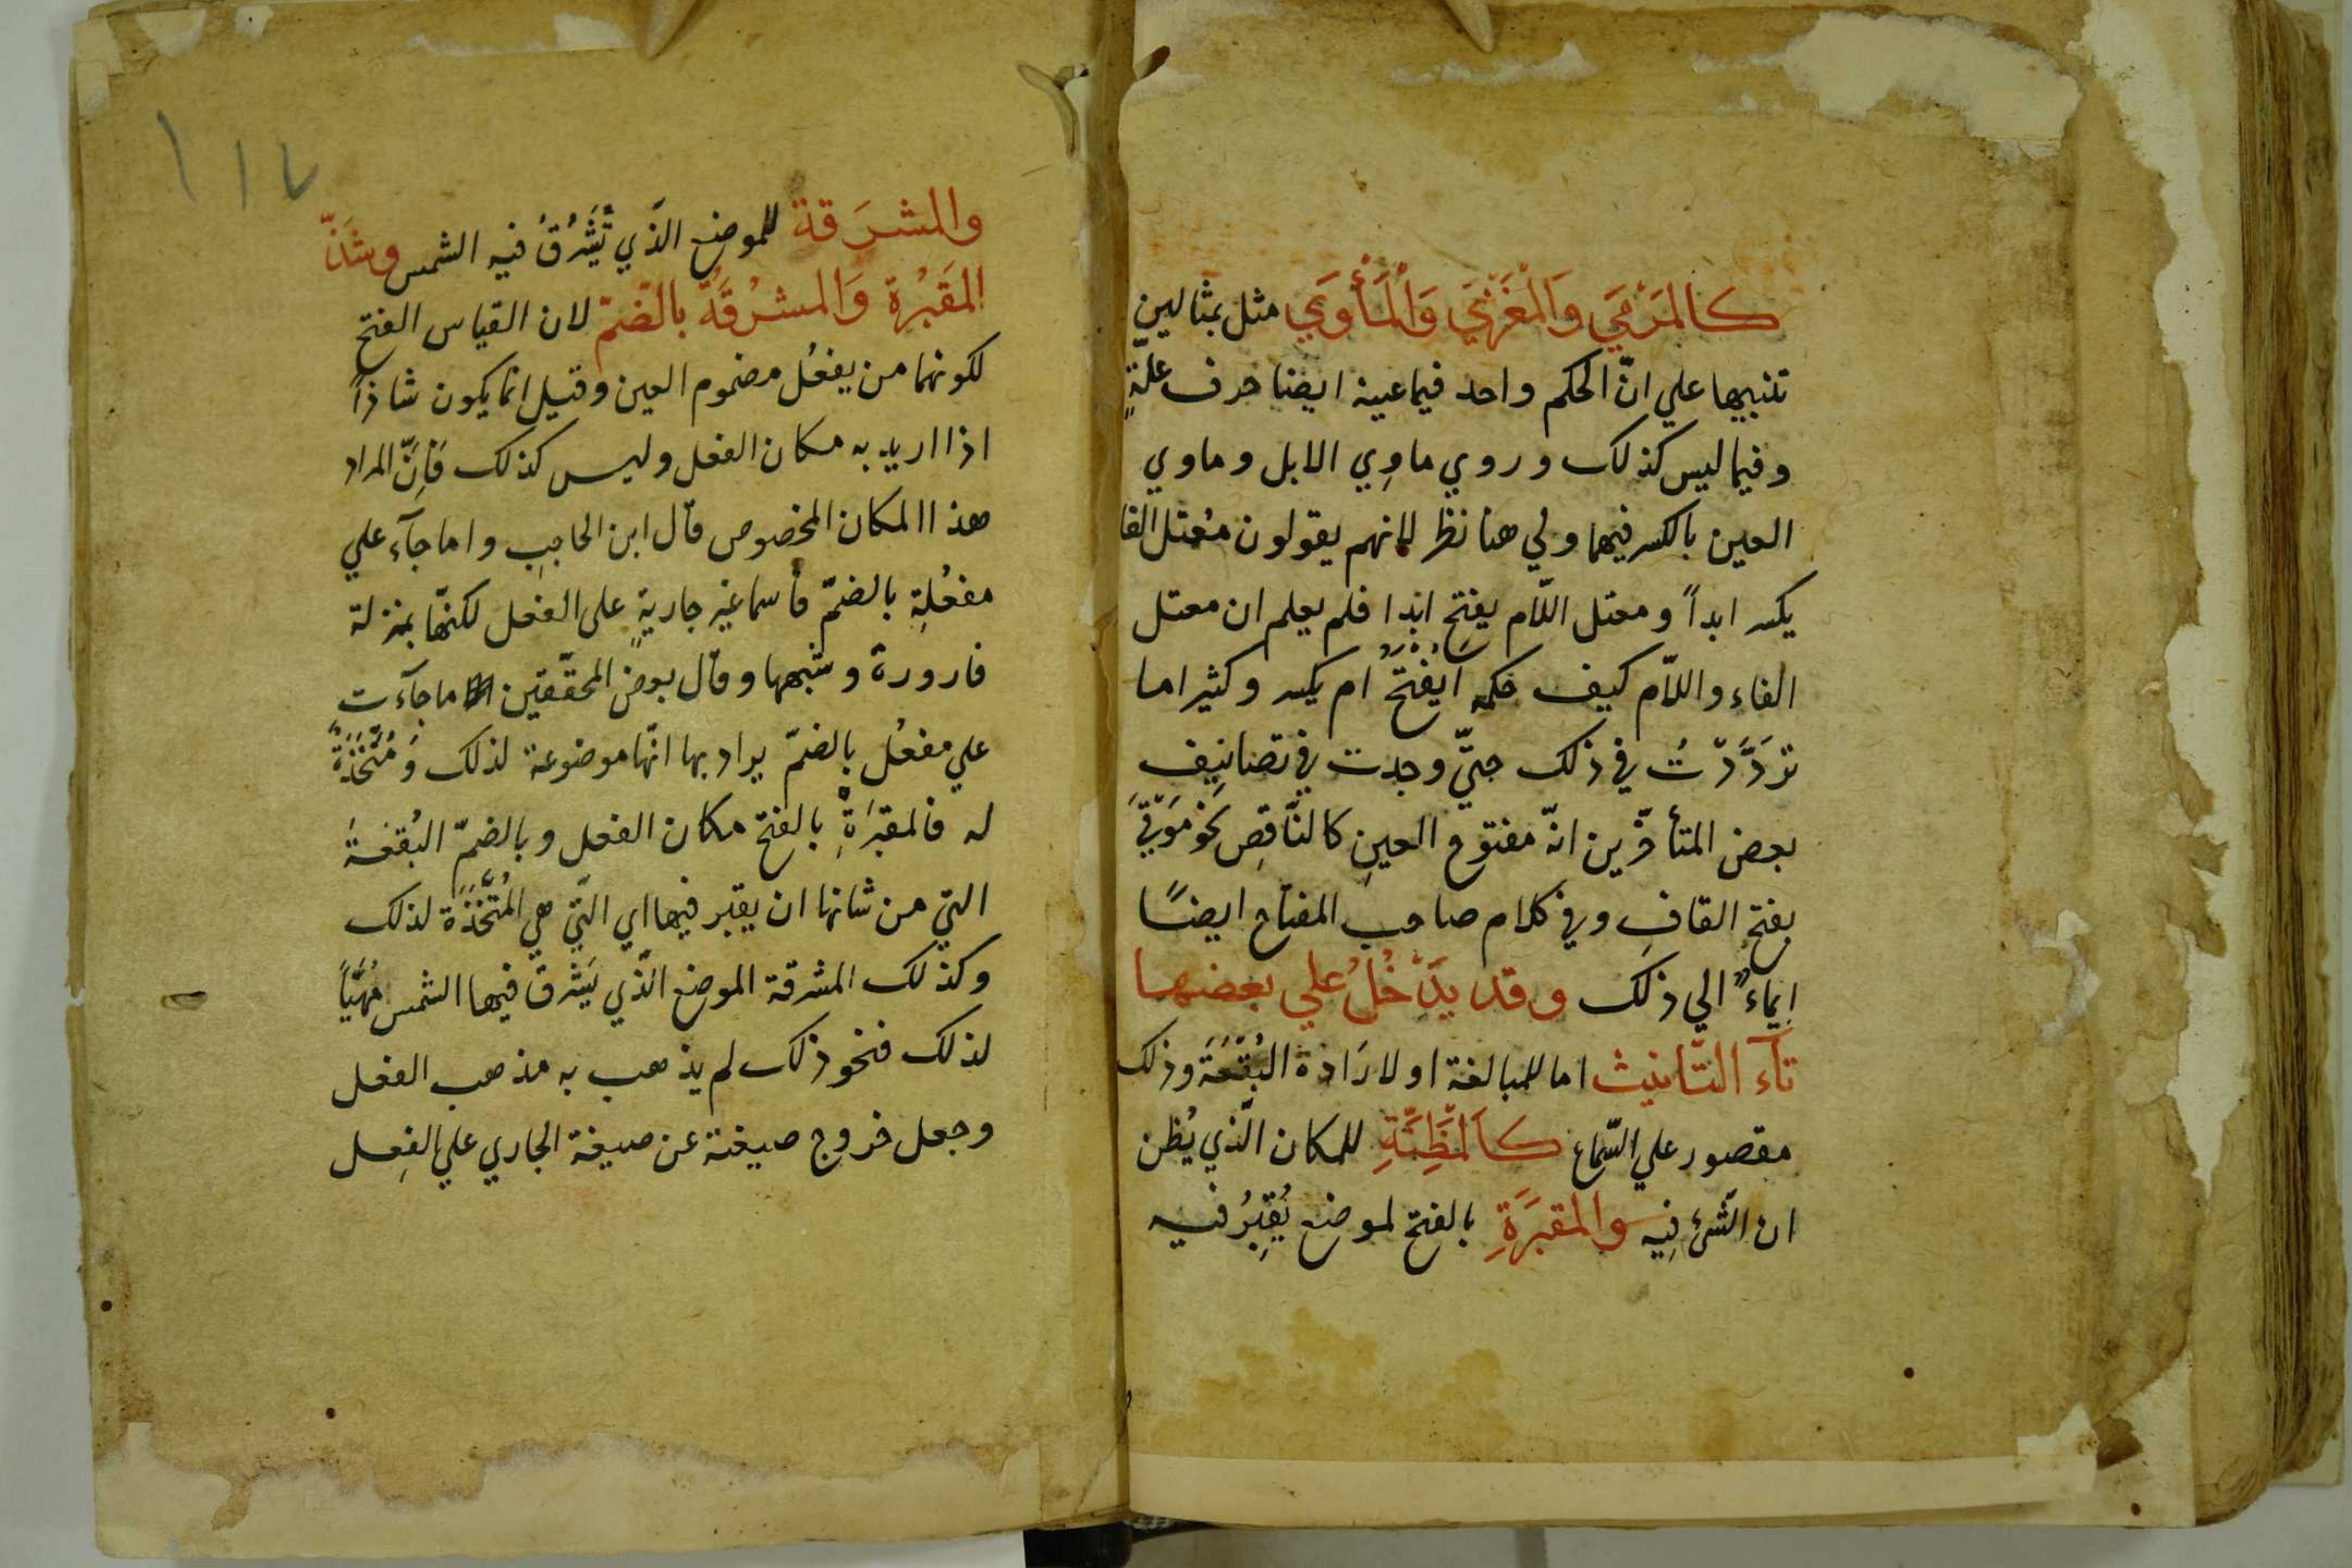 كالمَرْمَي وَالمَغْزَيَ وَالْمَأْوَي مثل بمثالين
تنبيها علي انّ الحكم واحد فيما عينه ايضا حرف علّةٍ
وفيما ليس كذلك وروي ماوِي الابل وماوي
العين بالكسر فيهما ولي هنا نظر لانهم يقولون مُعتل الفا
يكسر ابداً ومعتل اللّام يفتح ابدا فلم يعلم ان معتل
الفاء واللّام كيف حكمه ايُفْتَحُ ام يكسر وكثيرا ما
تَرَدَّدْتُ في ذلك حتيّ وجدت في تصانيف
بعض المتأخّرين انّه مفتوح العينِ كالنّاقِصِ نحو مَوْقَيَ
بفتح القافِ وفي كلام صاحب المفتاح ايضًا
ايماءٌ الي ذلك وقد يَدْخُلُ علي بعضها
تآء التّأنيث اما للمبالغة او لارَادة البُقْعَةَ وذلك
مقصور علي السّماع كاَلمَظِنَّةِ للمكان الّذي يُظن
ان الشّئ فِيه والمقبَرَةِ بالفتح لموضع يُقبِرُ فيه
١١٧
والمشرَقة للموضع الّذي تَشْرُقُ فيه الشمس وشَذّ
المَقبُرة وَالمشرُقَة بالضّمّ لان القياس الفتح
لكونهما من يفعُل مضموم العين وقيل انّما يكون شاذاً
اذا اريد به مكان الفعل وليس كذلك فَاِنَّ المراد
هذا المكان المخصوص قال ابن الحاجب واما جآء علي
مفعُلةِ بالضمّ فأسما غير جاريةٍ على الفعل لكنّها بمنزلة
قارورة وشبهها وقال بعض المحقّقين ما جآءت
علي مفعُل بالضمّ يراد بها انّها موضوعة لذلك وَمُتّخَذَةٌ
له فالمقبَرَةِ بالفتح مكان الفعل وبالضمّ البُقعَةُ
التي من شانها ان يقبر فيها اي التّي هي المُتّخَذَة لذلك
وكذلك المشرقة الموضع الّذي يَشرق فيها الشمس مُهيَّأً
لذلك فنحو ذلك لم يذهب به مذهب الفعل
وجعل خروج صيغته عن صيغة الجاري علي الفِعل